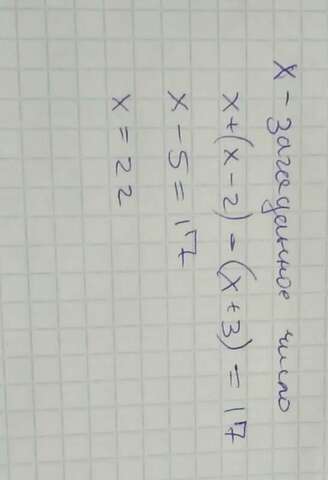 x - загаданное число
x+(x-2)-(x+3)=17
x-5=17
x=22